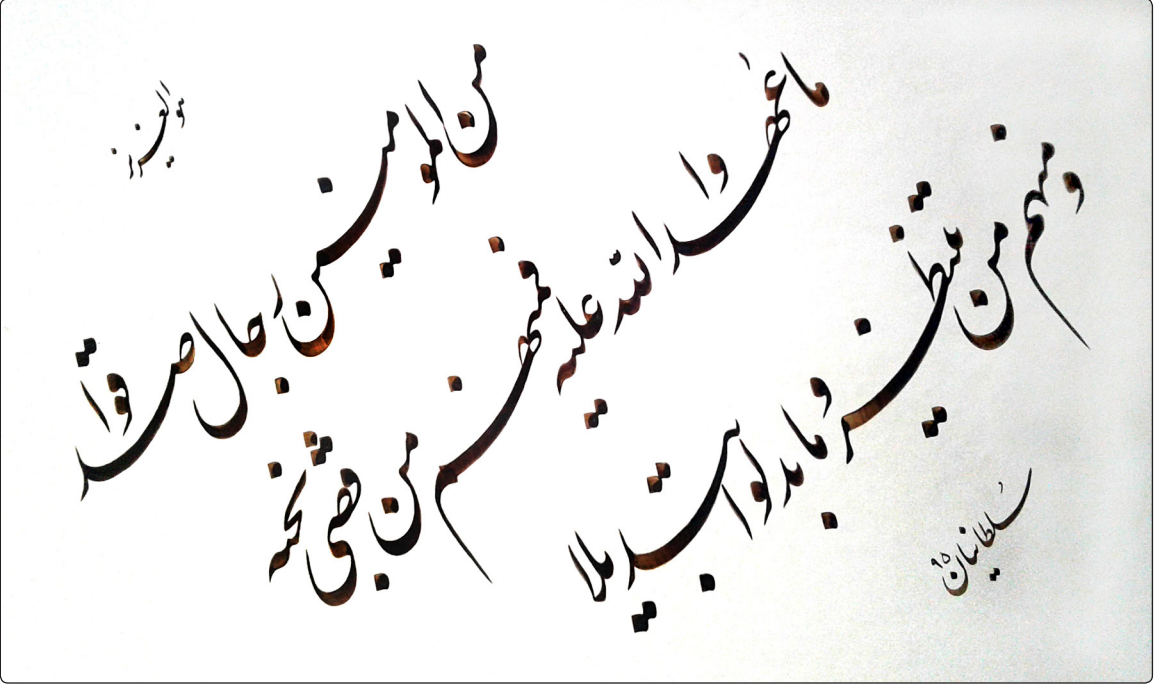 هو العزیز
من المومنین رجال صدقوا
ما عٰهدوا الله علیه فمنهم من قضی نحبه
و منهم من ینتظر و ما بدلوا تبدیلا
سلطانیان ۹۵